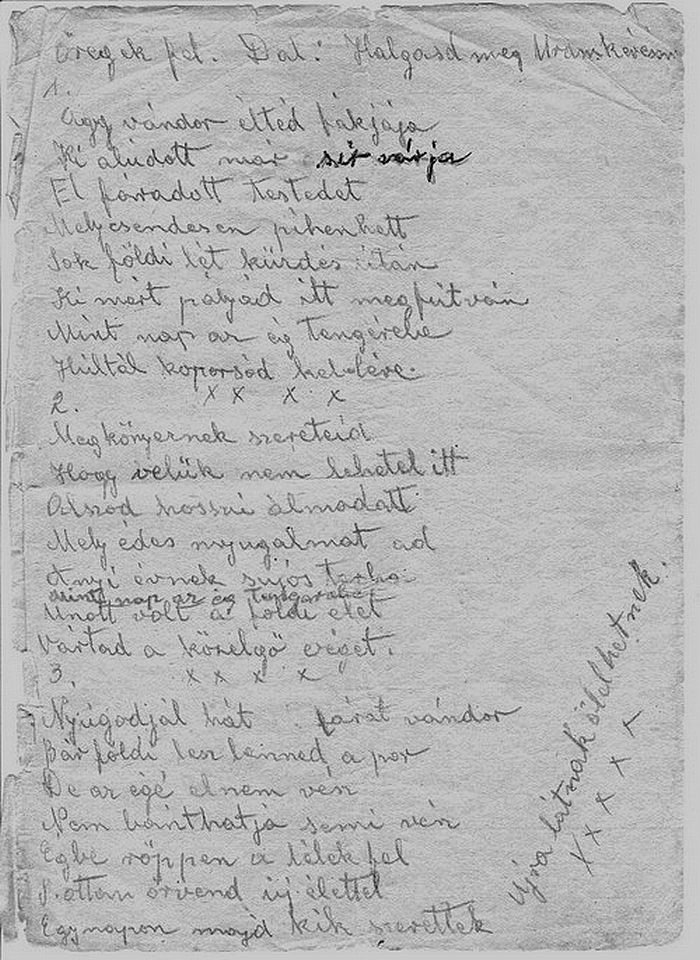 Öregek fel. Dal: Halgasd meg Uram kérésem
1.
Agg vándor élted fákjája
Ki alúdott már sir várja
El fáradott testedet
Mely csendesen pihenhett
Sok földi lét küzdés útán
Ki mért pályád itt megfútván
Mint nap az ég tengerébe
Húltál koporsód kebléve.
x x x x
2.
Megkönyeznek szereteid
Hogy velük nem lehetel itt
Alszod hosszú álmodatt
Mely édes nyugalmat ad
Anyi évnek sujós terhe
mint nap az ég tengerébe
Unott volt a földi élet
Vártad a közelgő véget.
3. x x x x
Nyúgodjál hát fárat vándor
Bár földi lesz benned a por
De az égé elnem vész
Nem bánthatja semi vész
Egbe röppen a lélek fel
S ottan örvend új élettel
Egynapon majd kik szerettek
Ujra látnak ölelhetnek.
x x x x x